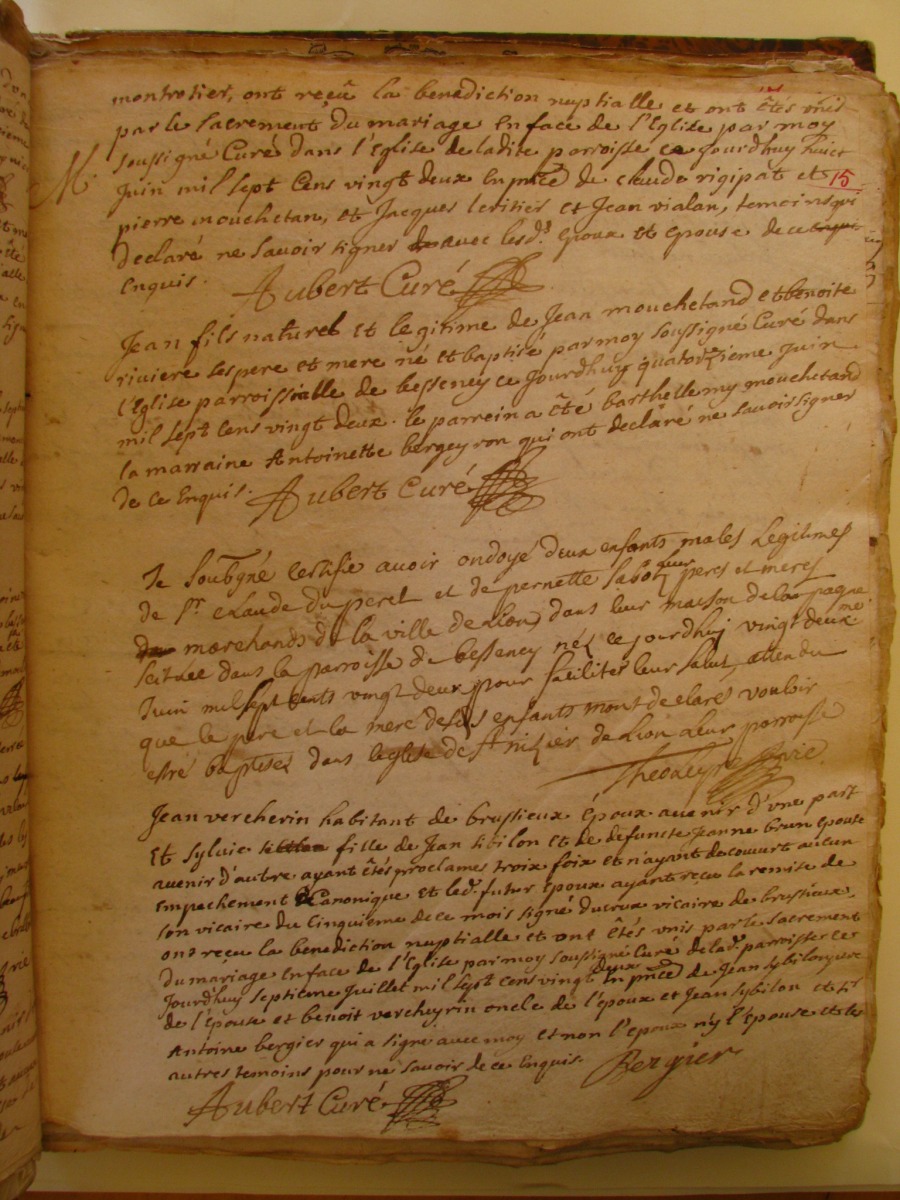 montrotier, ont reçû la benediction nuptialle et ont êtés unis
par le sacrement du mariage en face de l'Eglise par moy
soussigné Curé dans l'Eglise de ladite parroisse ce jourdhuy huict
M.
juin mil sept Cens vingt deux En pñce de claude rigipat et
15
pierre mouchetan, et Jacques leritier et Jean vialan, temoins qui
declaré ne savoir signer avec lesd.s époux et epouse de ce
Enquis. Aubert Curé
Jean fils naturel et legitime de Jean mouchetand et benoite
riviere ses pere et mere né et baptisé par moy soussigné Curé dans
l'Eglise parroissialle de besseney ce jourdhuy quatorzieme juin
mil sept cens vingt deux. le parrein a êté barthellemy mouchetand
la marraine Antoinette bergeyron qui ont declaré ne savoir signer
de ce Enquis. Aubert Curé
Je soubsigné certifie avoir ondoyé deux enfants males Legitimes
de Sr. claude duperel et de pernette sabot ses peres et meres
marchands de la ville de Lion dans leur maison de la pagne
scituee dans la parroisse de besseney néz ce jourdhuy vingt deuxme.
Juin mil sept cents vingt deux pour faciliter leur salut, attendu
que le pere et la mere desds enfants mont declaré vouloir
estre baptisez dans leglise de St nizier de Lion leur parroisse
Jean vercherin habitant de brussieux époux avenir d'une part
Et sylvie fille de Jean sibilon et de defuncte Jeanne brun epouse
avenir d'autre ayant êtés proclames troix foix et n'ayant decouvert aucun
empechement Canonique et led. futur Epoux ayant reçu la remise de
son vicaire du Cinquieme de ce mois signé ducrux vicaire de brussieux
ont reçu la benediction nuptialle et ont êtés unis par le sacrement
du mariage En face de l'Eglise par moy soussigné Curé de lad. parroisse ce
jourdhuy septieme juillet mil sept cens vingt deux En pñce de Jean sybilon pere
de l'épouse et benoit vercheyrin oncle de l'époux et Jean sybilon et Sr
Antoine bergier qui a signé avec moy et non l'epoux n'y l'épouse et les
autres temoins pour ne savoir de ce Enquis. Bergier
Aubert Curé